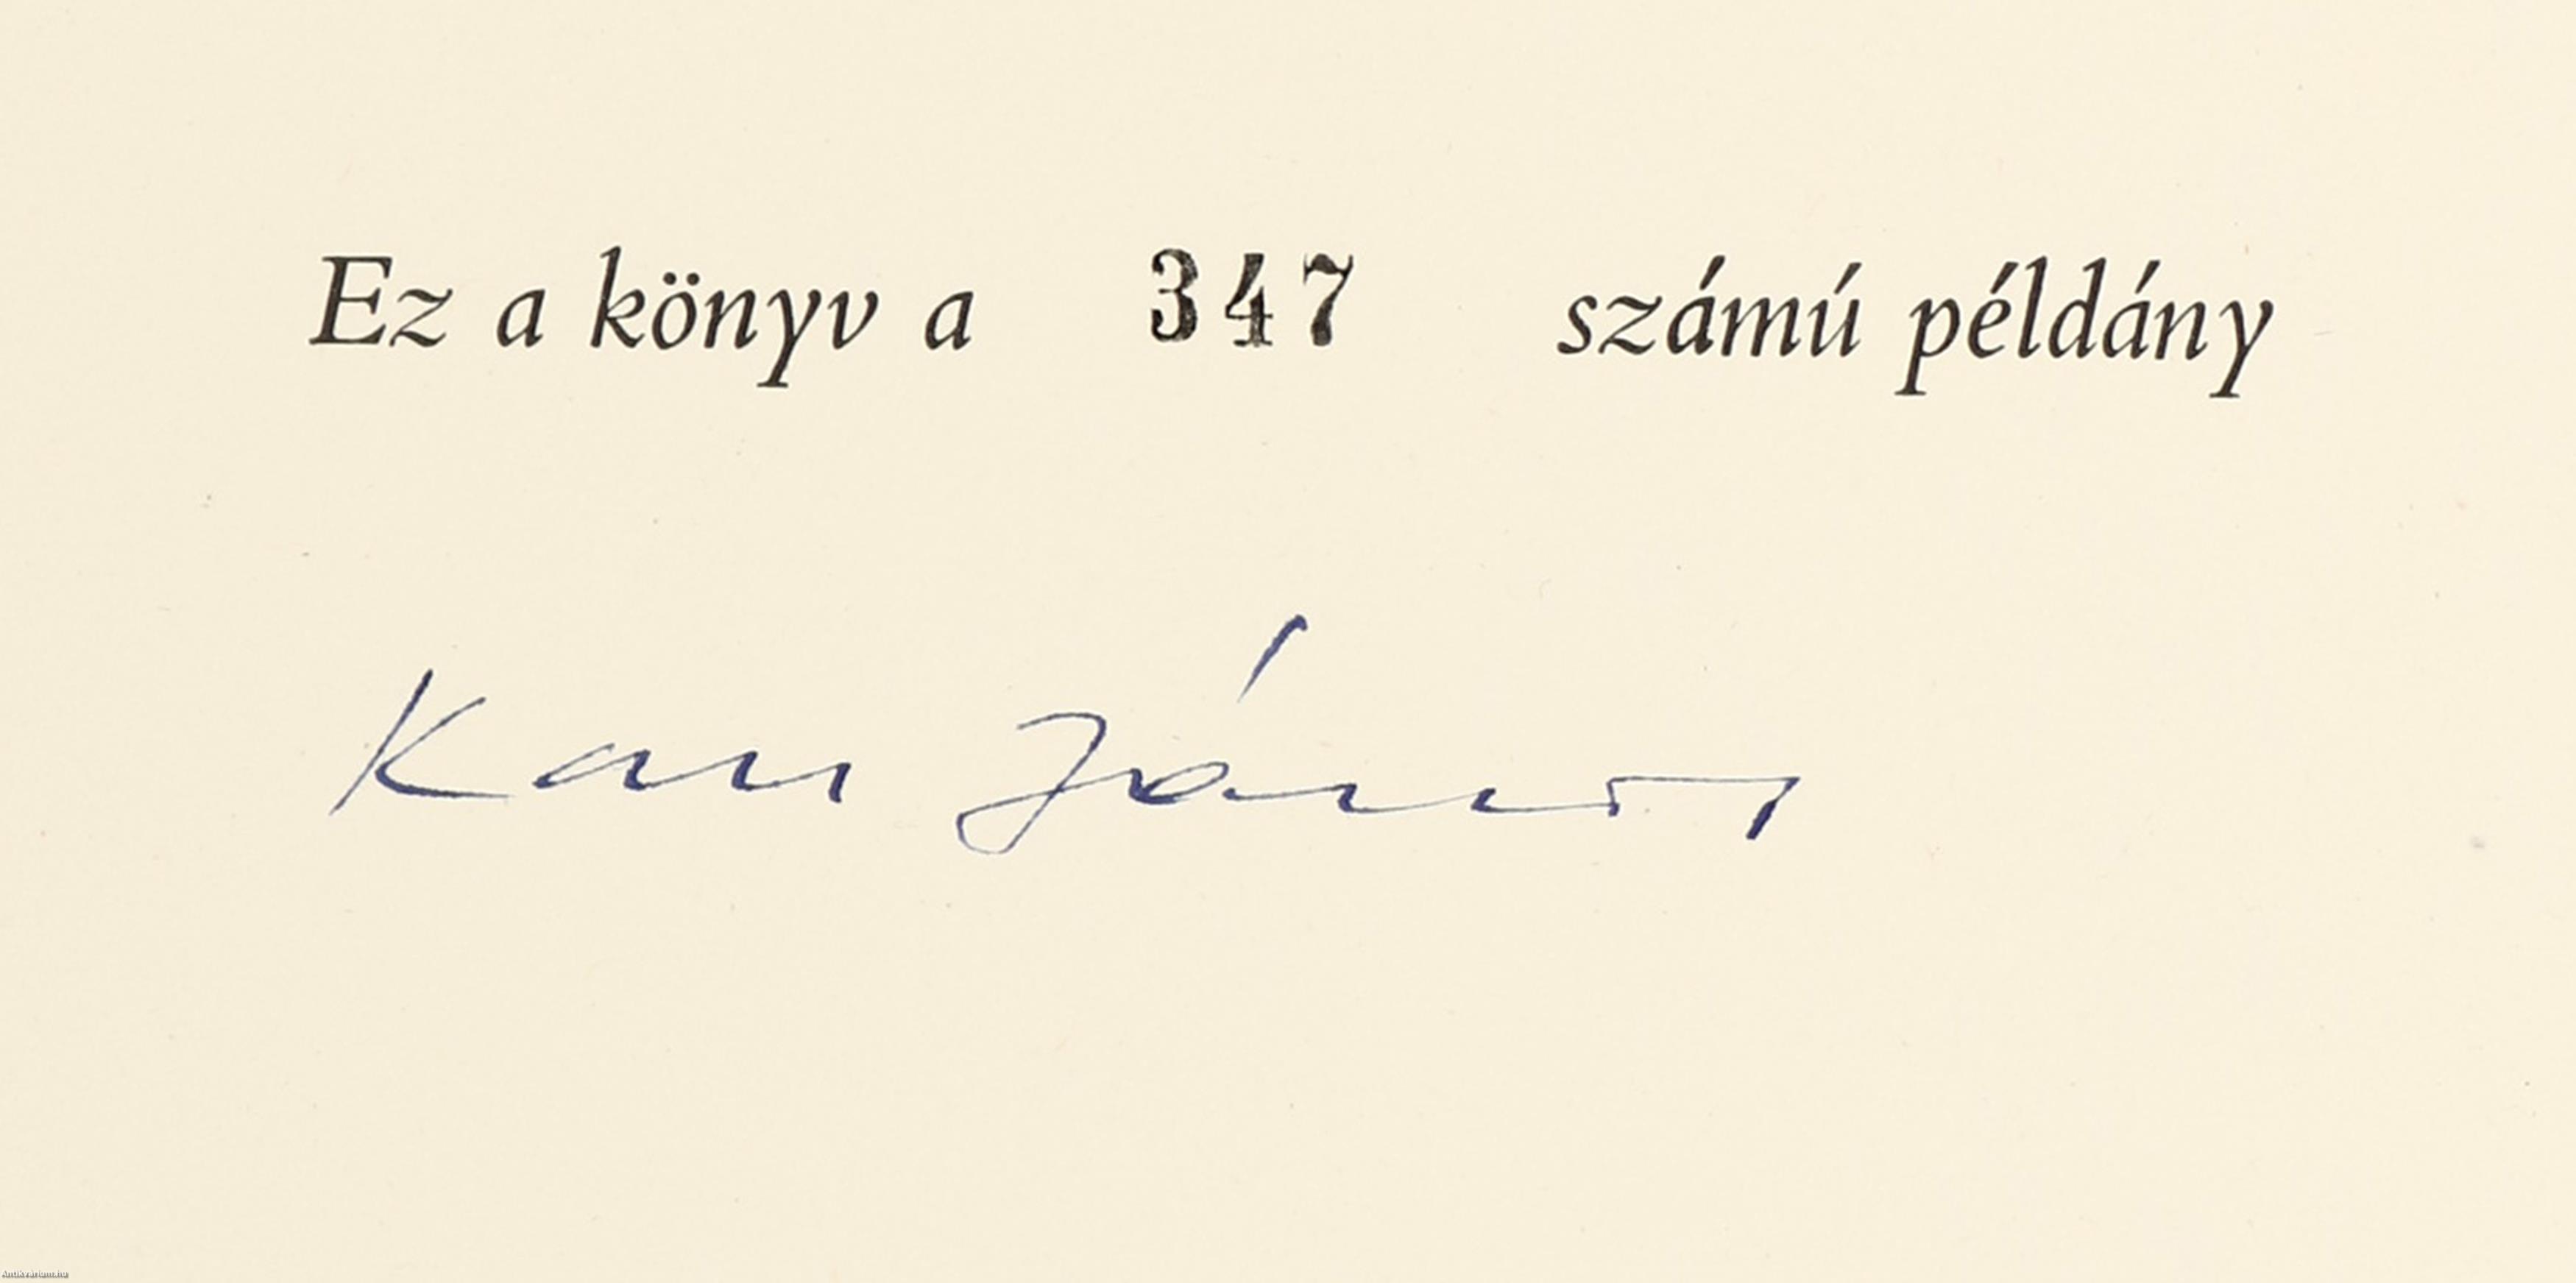 Ez a könyv a 347 számú példány
Kass János
Antikvárium.hu